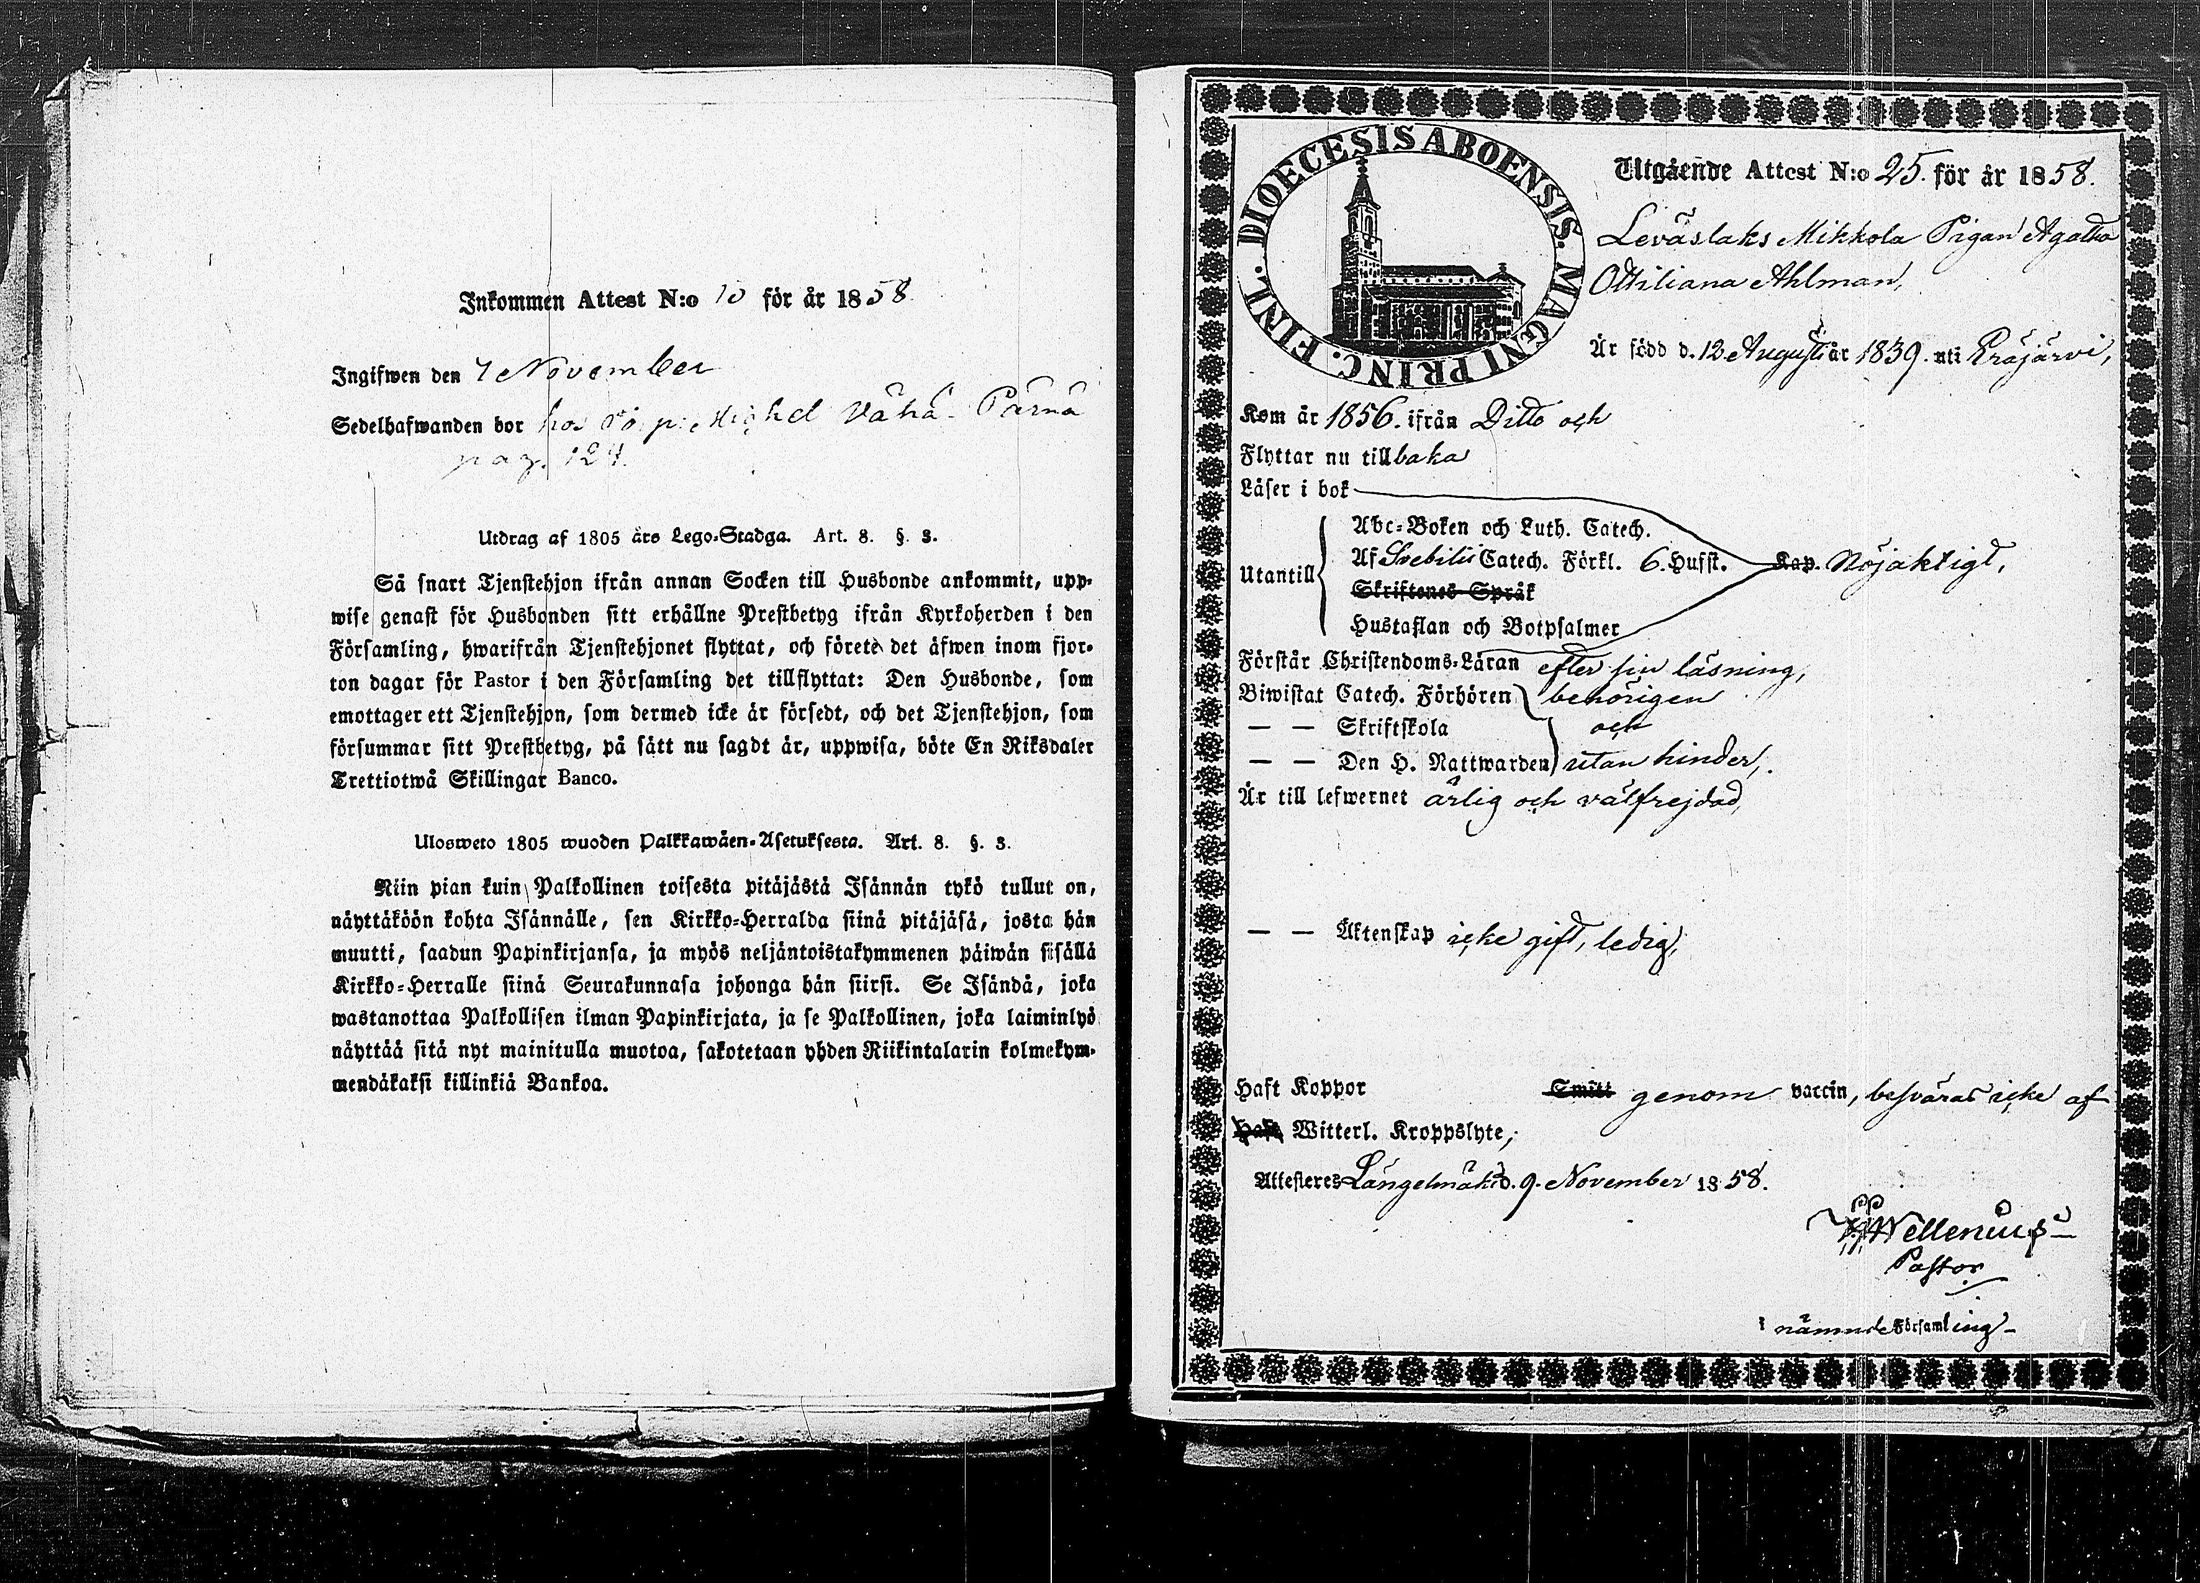 Inkommen Attest N:o 10 för år 1858
Ingifwen den 7 November
Sedelhafwanden bor hos Michel Vähä-Pärnä
pag. 124.
Utdrag af 1805 års Lego-Stadga. Art. 8. §. 3.
Så snart Tjenstehjon ifrån annan Socken till Husbonde ankommit, upp-
wise genast för Husbonden sitt erhållne Prestbetyg ifrån Kyrkoherden i den
Församling, hwarifrån Tjenstehjonet flyttat, och förete det äfwen inom fjor-
ton dagar för Pastor i den Församling det tillflyttat: Den Husbonde, som
emottager ett Tjenstehjon, som dermed icke är försedt, och det Tjenstehjon, som
försummar sitt Prestbetyg, på sätt nu sagdt är, uppwisa, böte En Riksdaler
Trettiotwå Skillingar Banco.
Ulosweto 1805 wuoden Palkkawäen-Asetuksesta. Art. 8. §. 3.
Niin pian kuin Palkollinen toisesta pitäjästä Isännän tykö tullut on,
näyttäköön kohta Isännälle, sen Kirkko-Herralda siinä pitäjäsä, josta hän
muutti, saadun Papinkirjansa, ja myös neljäntoistakymmenen päiwän sisällä
Kirkko-Herralle siinä Seurakunnasa johonga hän siirsi. Se Isändä, joka
wastanottaa Palkollisen ilman Papinkirjata, ja se Palkollinen, joka laiminlyö
näyttää sitä nyt mainitulla muotoa, sakotetaan yhden Riikintalarin kolmekym-
mendäkaksi killinkiä Bankoa.
DIOECESIS ABOENSIS. MAGNI PRINC. FINL.
Utgående Attest N:o 25. för år 1858.
Leväslaks Mikkola Pigan Agatha
Ottiliana Ahlman,
Är född d. 12 Augusti år 1839. uti Eräjärvi,
Kom år 1856. ifrån Ditto och
Flyttar nu tillbaka
Läser i bok
Abc-Boken och Luth. Catech.
Utantill Af Svebilii Catech. Förkl. 6. Hufst. Kap. Nöjaktigt,
Skriftenes Språk
Hustaflan och Botpsalmer
Förstår Christendoms-Läran efter sin läsning,
Biwistat Catech. Förhören behörigen
— — Skriftskola och
— — Den H. Nattwarden utan hinder,
Är till lefwernet ärlig och välfrejdad,
— — Äktenskap icke gift, ledig,
Haft Koppor Smitt genom vaccin, besväras icke af
Haft Witterl. Kroppslyte,
Attesteres Längelmäki d. 9. November 1858.
Wellenius
Pastor
i nämnde Församling